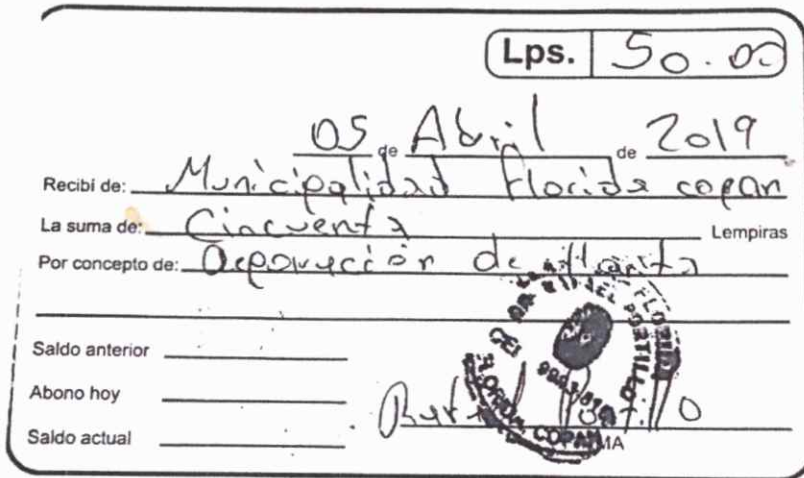 Lps. 50.00
05 de Abril de 2019
Recibí de: Municipalidad Florida copan
La suma de: Cincuenta Lempiras
Por concepto de: de
Saldo anterior
Abono hoy
Saldo actual
FLORIDA COPAN
PORTILLO